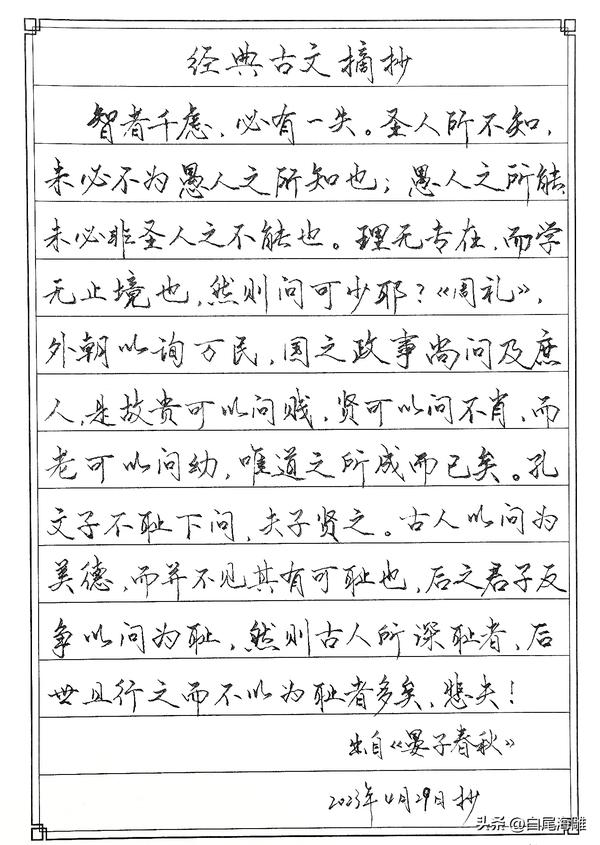 经典古文摘抄
智者千虑，必有一失。圣人所不知，
未必不为愚人之所知也；愚人之所能，
未必非圣人之不能也。理无专在，而学
无止境也，然则问可少耶？《周礼》，
外朝以询万民，国之政事尚问及庶
人，是故贵可以问贱，贤可以问不肖，而
老可以问幼，唯道之所成而已矣。孔
文子不耻下问，夫子贤之。古人以问为
美德，而并不见其有可耻也，后之君子反
争以问为耻，然则古人所深耻者，后
世且行之而不以为耻者多矣，悲夫！
出自《晏子春秋》
2023年4月29日抄
头条 @白尾海雕